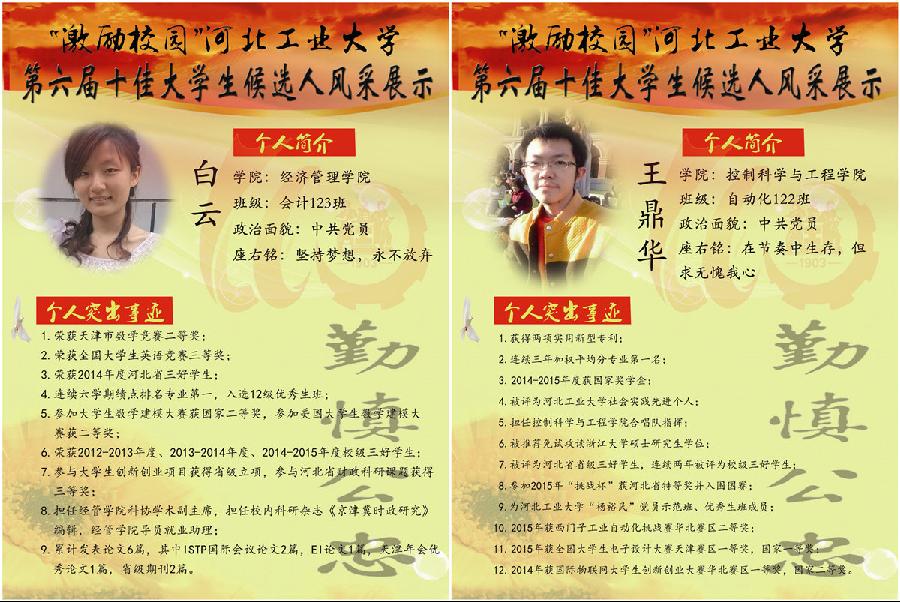 “激励校园”河北工业大学
第六届十佳大学生候选人风采展示
白云
个人简介
学院：经济管理学院
班级：会计123班
政治面貌：中共党员
座右铭：坚持梦想，永不放弃
个人突出事迹
1. 荣获天津市数学竞赛二等奖；
2. 荣获全国大学生英语竞赛三等奖；
3. 荣获2014年度河北省三好学生；
4. 连续六学期绩点排名专业第一，入选12级优秀生班；
5. 参加大学生数学建模大赛获国家二等奖，参加美国大学生数学建模大
赛获二等奖；
6. 荣获2012-2013年度、2013-2014年度、2014-2015年度校级三好学生；
7. 参与大学生创新创业项目获得省级立项，参与河北省财政科研课题获得
三等奖；
8. 担任经管学院科协学术副主席，担任校内科研杂志《京津冀时政研究》
编辑，经管学院导员就业助理；
9. 累计发表论文6篇，其中ISTP国际会议论文2篇，EI论文1篇，天津年会优
秀论文1篇，省级期刊2篇。
勤慎公忠
1903
“激励校园”河北工业大学
第六届十佳大学生候选人风采展示
王鼎华
个人简介
学院：控制科学与工程学院
班级：自动化122班
政治面貌：中共党员
座右铭：在节奏中生存，但
求无愧我心
个人突出事迹
1. 获得两项实用新型专利；
2. 连续三年加权平均分专业第一名；
3. 2014-2015年度获国家奖学金；
4. 被评为河北工业大学社会实践先进个人；
5. 担任控制科学与工程学院合唱队指挥；
6. 被推荐免试攻读浙江大学硕士研究生学位；
7. 被评为河北省省级三好学生，连续两年被评为校级三好学生；
8. 参加2015年“挑战杯”获河北省特等奖并入围国赛；
9. 为河北工业大学“杨裕民”党员示范班、优秀生班成员；
10. 2015年获西门子工业自动化挑战赛华北赛区二等奖；
11. 2015年获全国大学生电子设计大赛天津赛区一等奖，国家一等奖；
12. 2014年获国际物联网大学生创新创业大赛华北赛区一等奖，国家二等奖。
勤慎公忠
1903